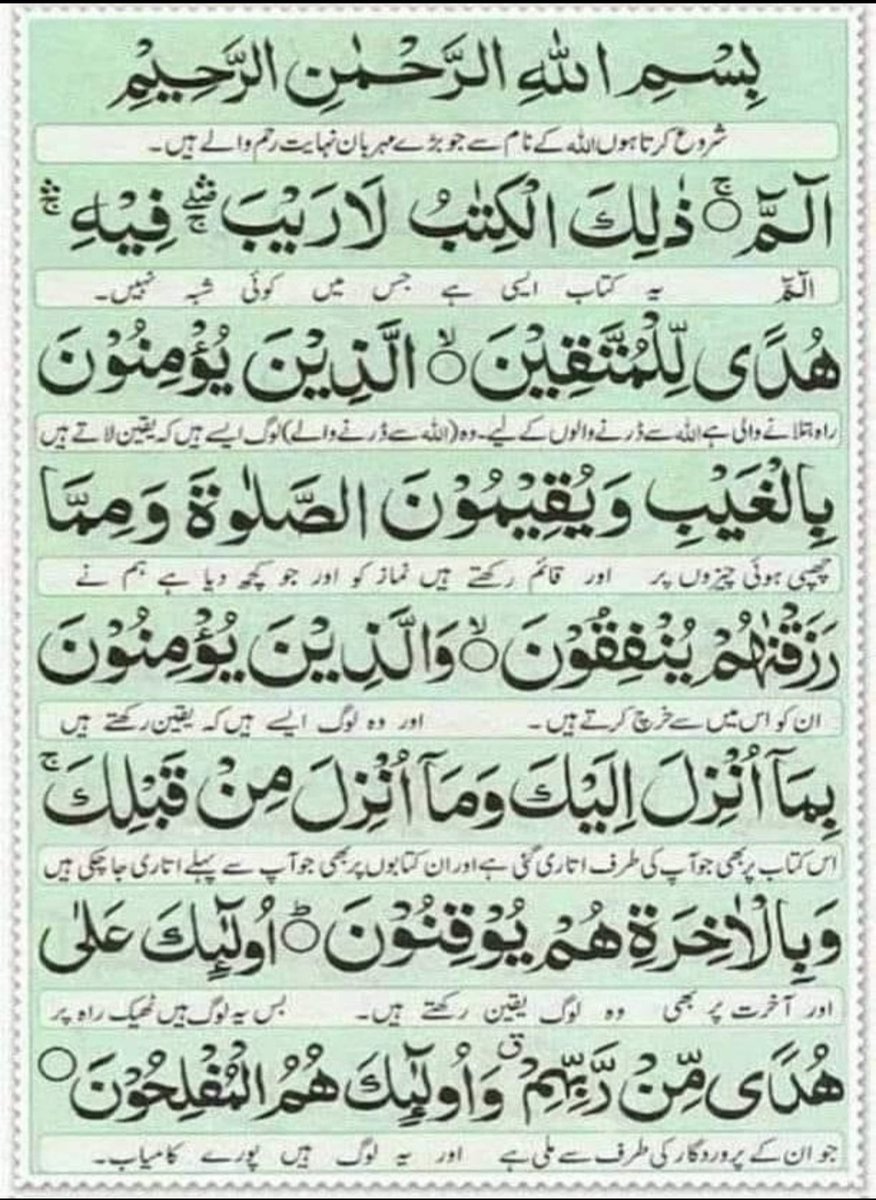 بِسْمِ اللهِ الرَّحْمٰنِ الرَّحِيْمِ
شروع کرتا ہوں اللہ کے نام سے جو بڑے مہربان نہایت رحم والے ہیں۔
الٓمّٓ ۚ○ ذٰلِكَ الْكِتٰبُ لَا رَيْبَ ۛۖۚ فِيْهِ ۛۚ
الٓمّٓ یہ کتاب ایسی ہے جس میں کوئی شبہ نہیں۔
هُدًى لِّلْمُتَّقِيْنَ ۙ○ الَّذِيْنَ يُؤْمِنُوْنَ
راہ بتلانے والی ہے اللہ سے ڈرنے والوں کے لیے۔ وہ (اللہ سے ڈرنے والے) لوگ ایسے ہیں کہ یقین لاتے ہیں
بِالْغَيْبِ وَيُقِيْمُوْنَ الصَّلٰوةَ وَمِمَّا
چھپی ہوئی چیزوں پر اور قائم رکھتے ہیں نماز کو اور جو کچھ دیا ہے ہم نے
رَزَقْنٰهُمْ يُنْفِقُوْنَ ۙ○ وَالَّذِيْنَ يُؤْمِنُوْنَ
ان کو اس میں سے خرچ کرتے ہیں۔ اور وہ لوگ ایسے ہیں کہ یقین رکھتے ہیں
بِمَآ اُنْزِلَ اِلَيْكَ وَمَآ اُنْزِلَ مِنْ قَبْلِكَ ۚ
اس کتاب پر بھی جو آپ کی طرف اتاری گئی ہے اور ان کتابوں پر بھی جو آپ سے پہلے اتاری جا چکی ہیں
وَبِالْاٰخِرَةِ هُمْ يُوْقِنُوْنَ ؕ○ اُولٰٓئِكَ عَلٰى
اور آخرت پر بھی وہ لوگ یقین رکھتے ہیں۔ بس یہ لوگ ہیں ٹھیک راہ پر
هُدًى مِّنْ رَّبِّهِمْ ق وَاُولٰٓئِكَ هُمُ الْمُفْلِحُوْنَ ○
جو ان کے پروردگار کی طرف سے ملی ہے اور یہ لوگ ہیں پورے کامیاب۔